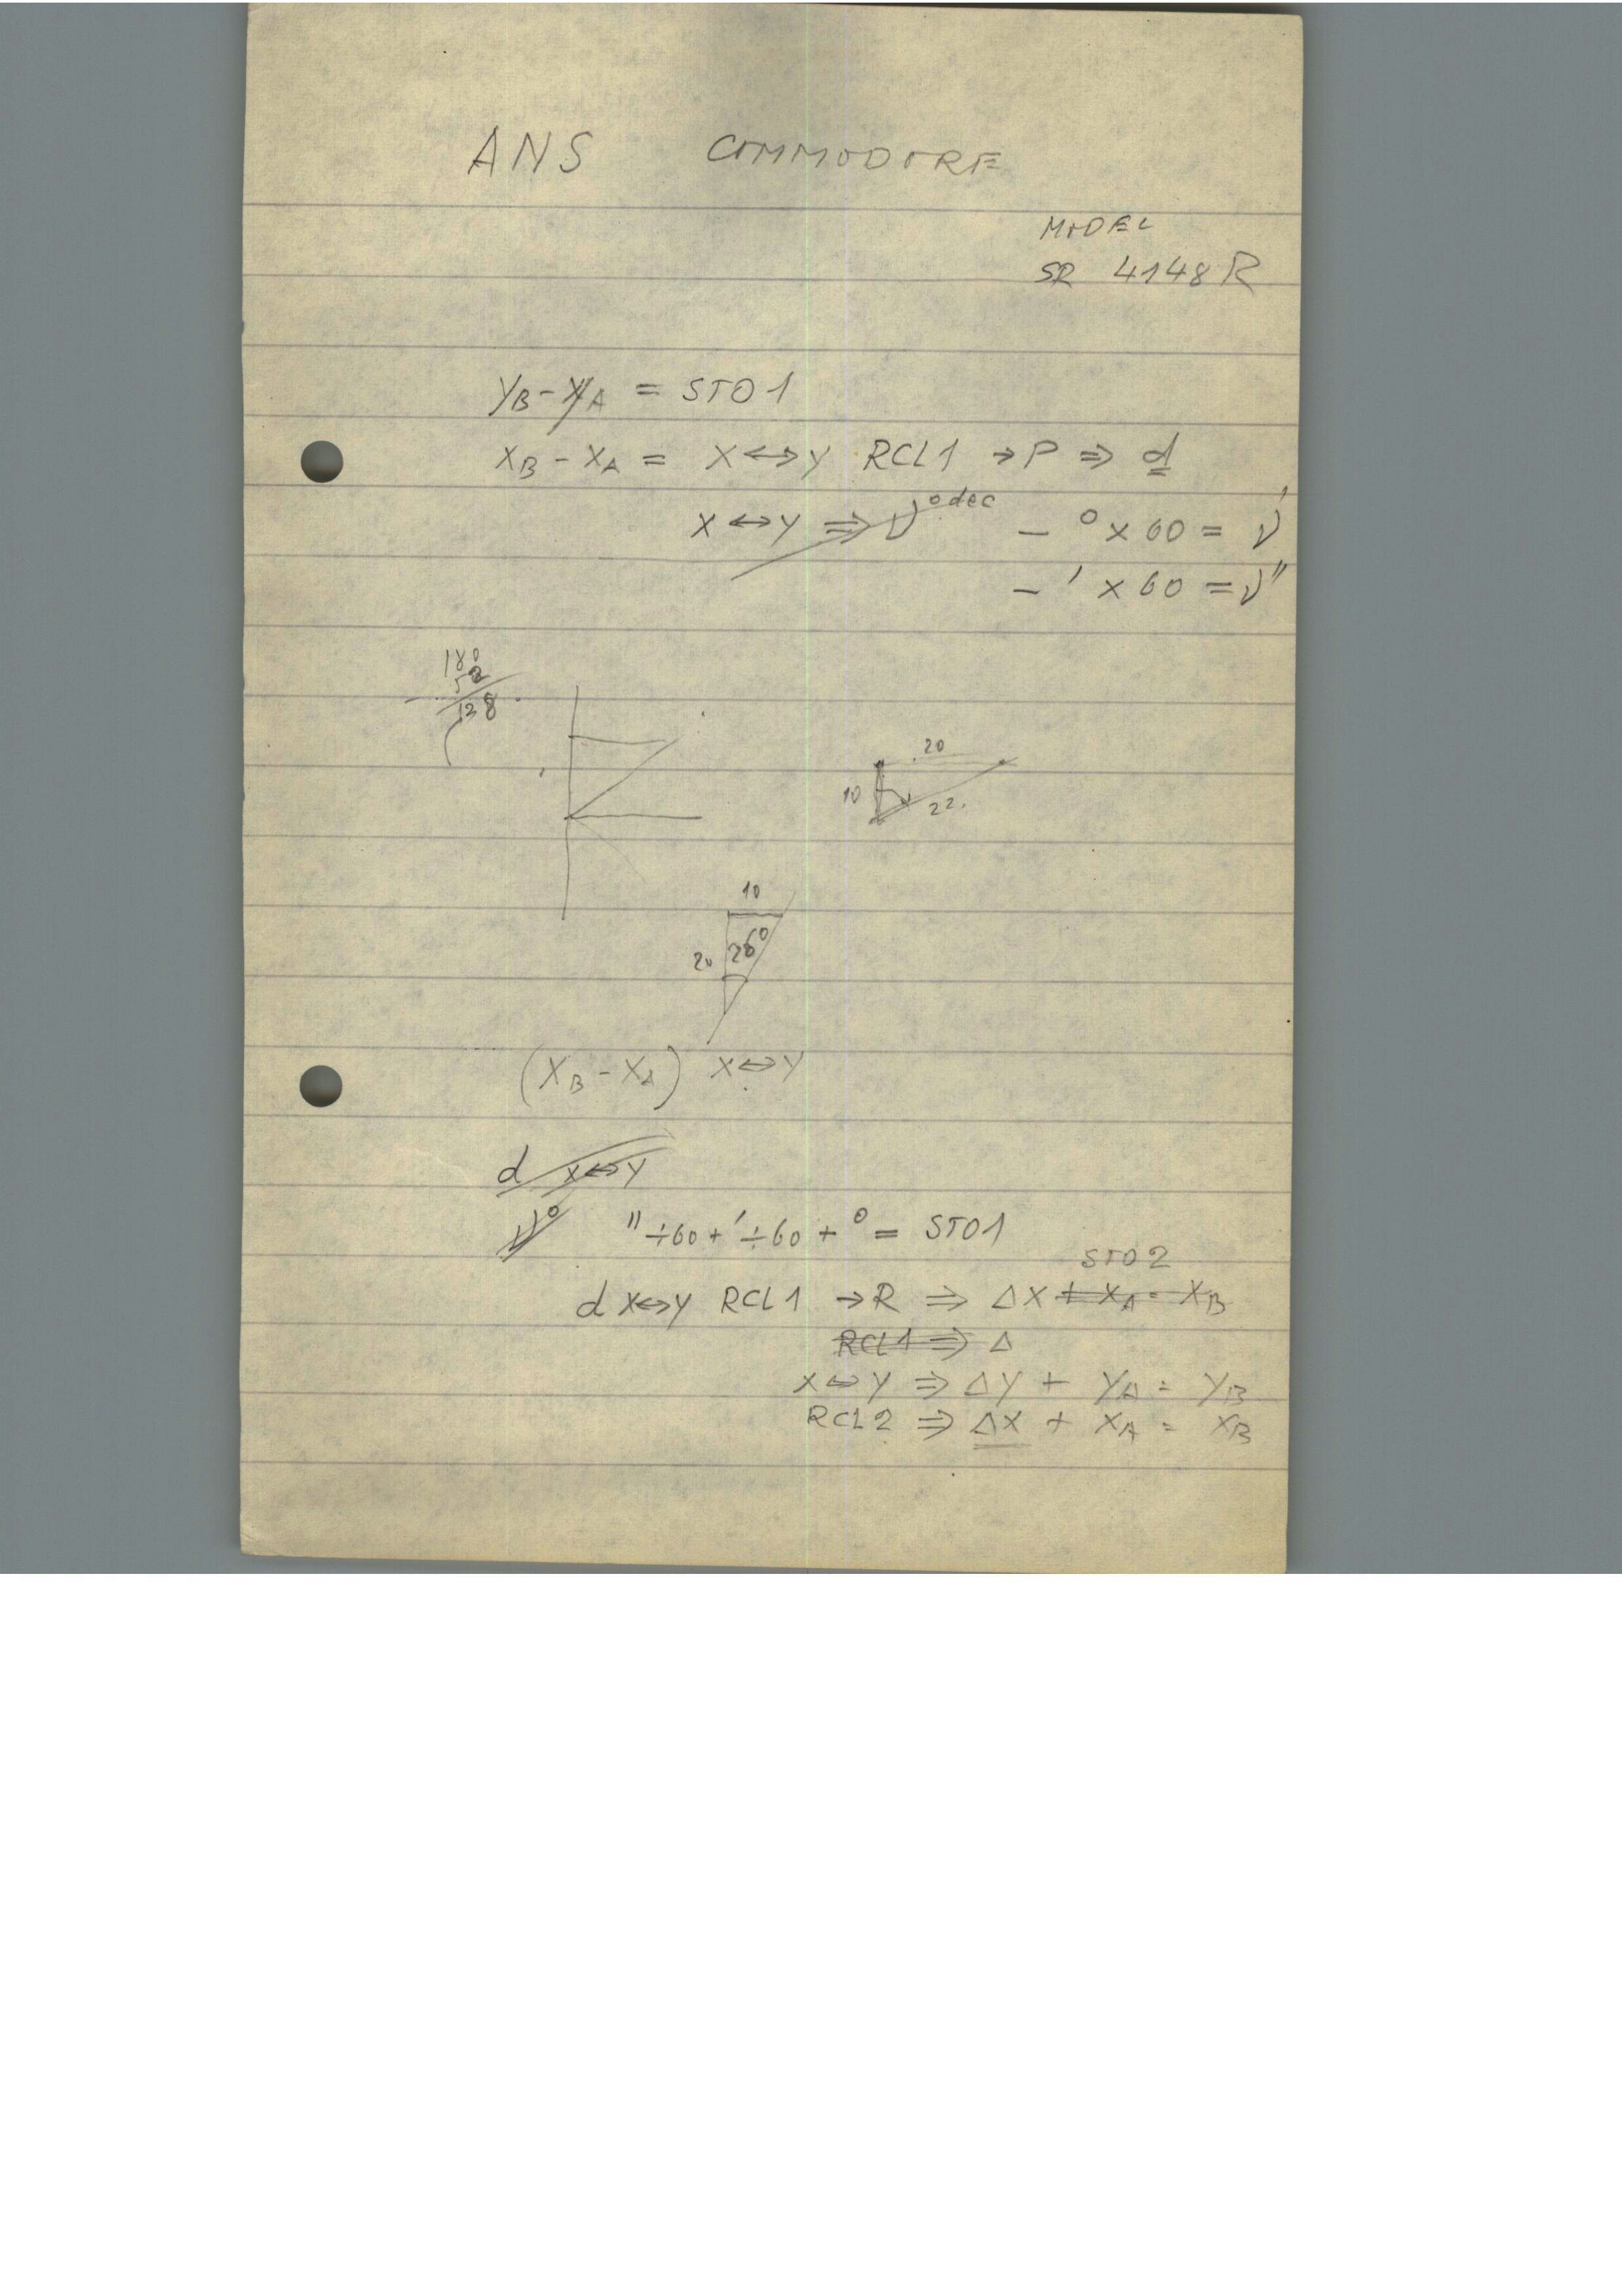 ANS COMMODORE
MODEL
SR 4148R
yB - yA = STO 1
xB - xA = x↔y RCL1 →P ⇒ d
x↔y ⇒ ν° dec - ° x 60 = ν'
- ' x 60 = ν"
180
52
128
20
10
22.
10
20
26°
(XB - XA) x↔y
d x↔y
ν° " ÷60 + ' ÷60 + ° = STO1
STO2
d x↔y RCL1 →R ⇒ ΔX + XA = XB
RCL1 ⇒ Δ
x↔y ⇒ Δy + yA = yB
RCL2 ⇒ ΔX + XA = XB